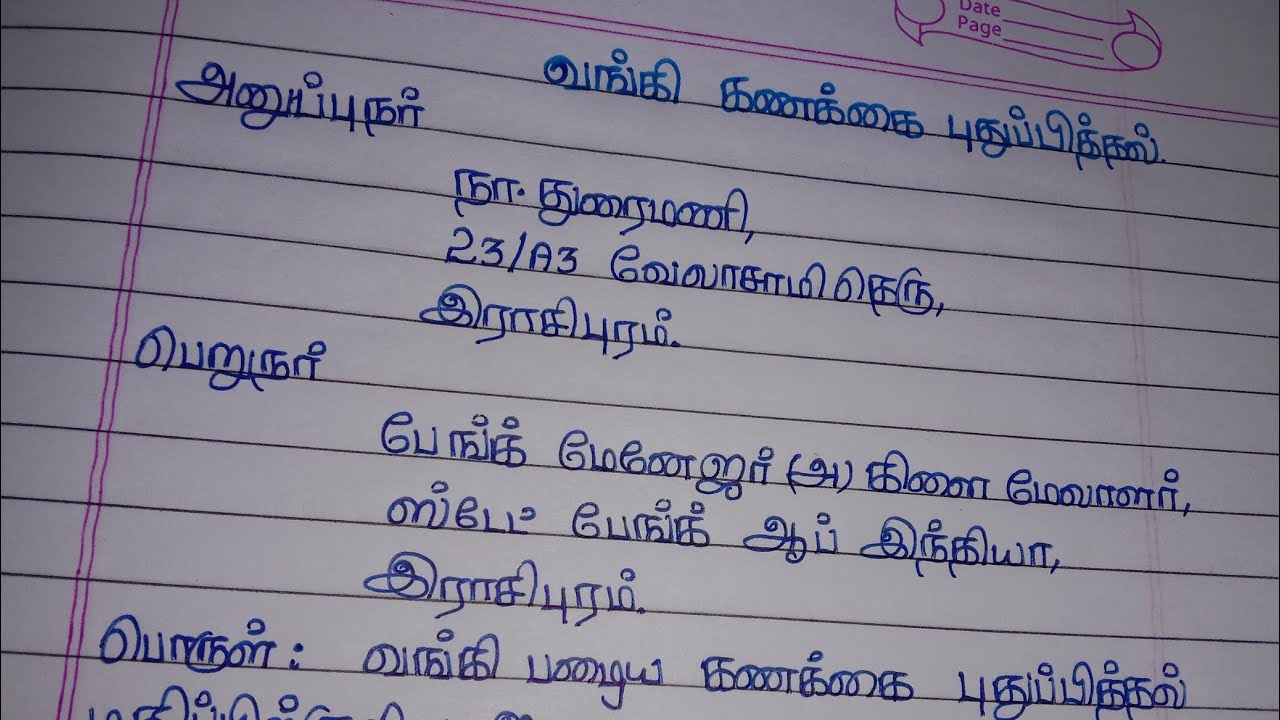 Date
Page
வங்கி கணக்கை புதுப்பித்தல்.
அனுப்புநர்
நா. துரைமணி,
23/A3 வேலாசாமி தெரு,
இராசிபுரம்.
பெறுநர்
பேங்க் மேனேஜர் (அ) கிளை மேலாளர்,
ஸ்டேட் பேங்க் ஆப் இந்தியா,
இராசிபுரம்.
பொருள் : வங்கி பழைய கணக்கை புதுப்பித்தல்